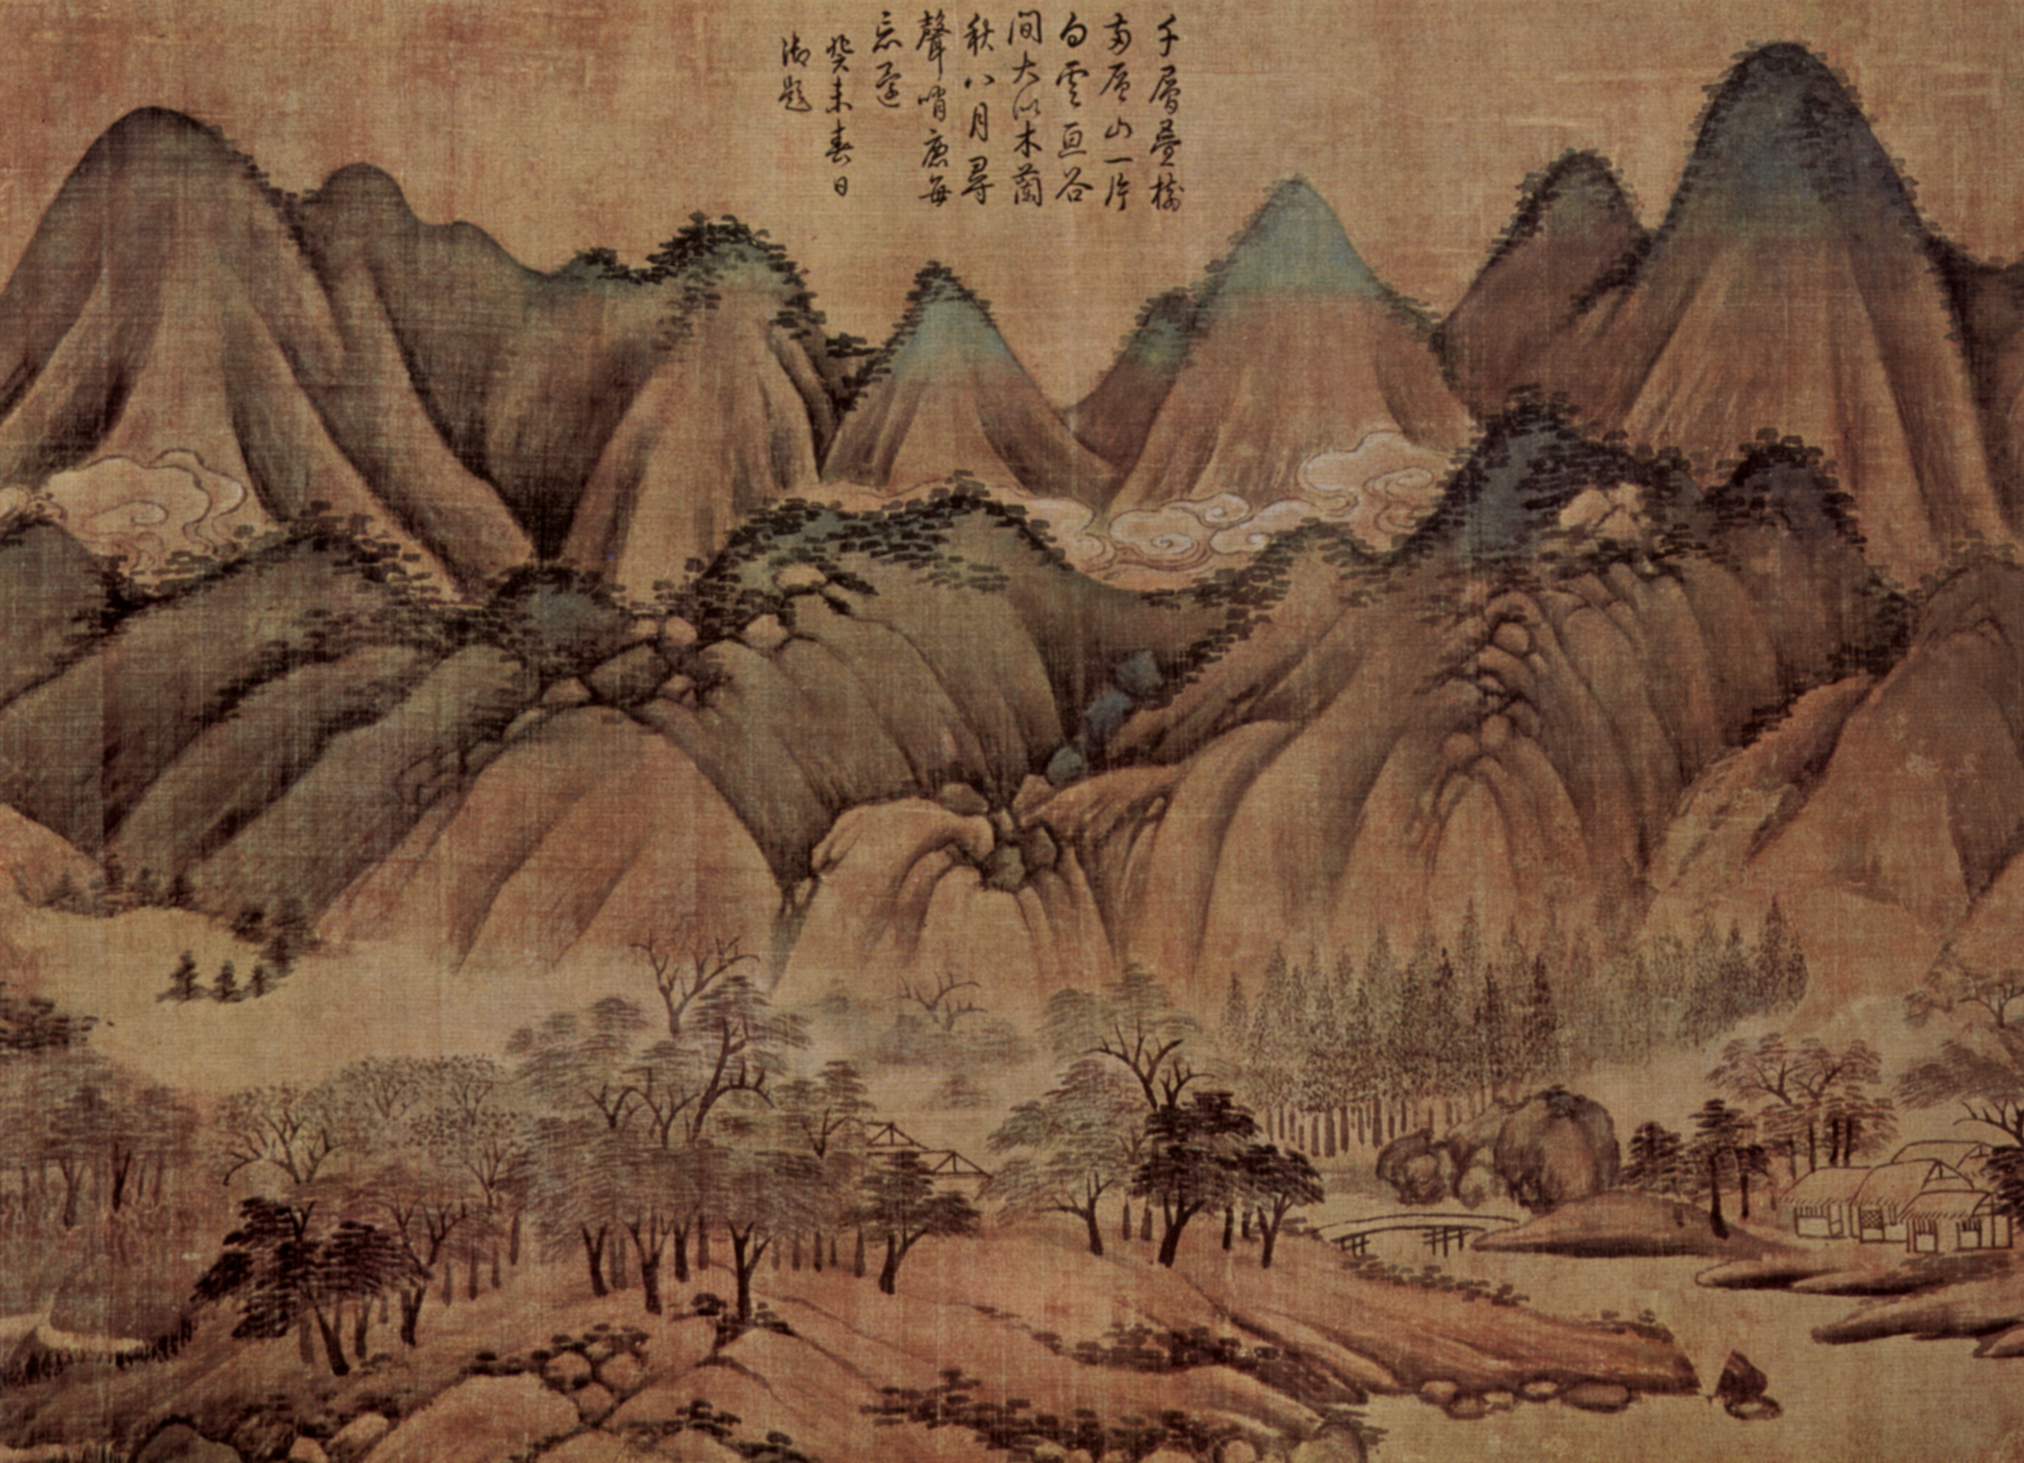 千層疊樹
兩層山一片
白雲亘谷
間大似木蘭
秋八月尋
聲哨鹿每
忘還
癸未春日
御題